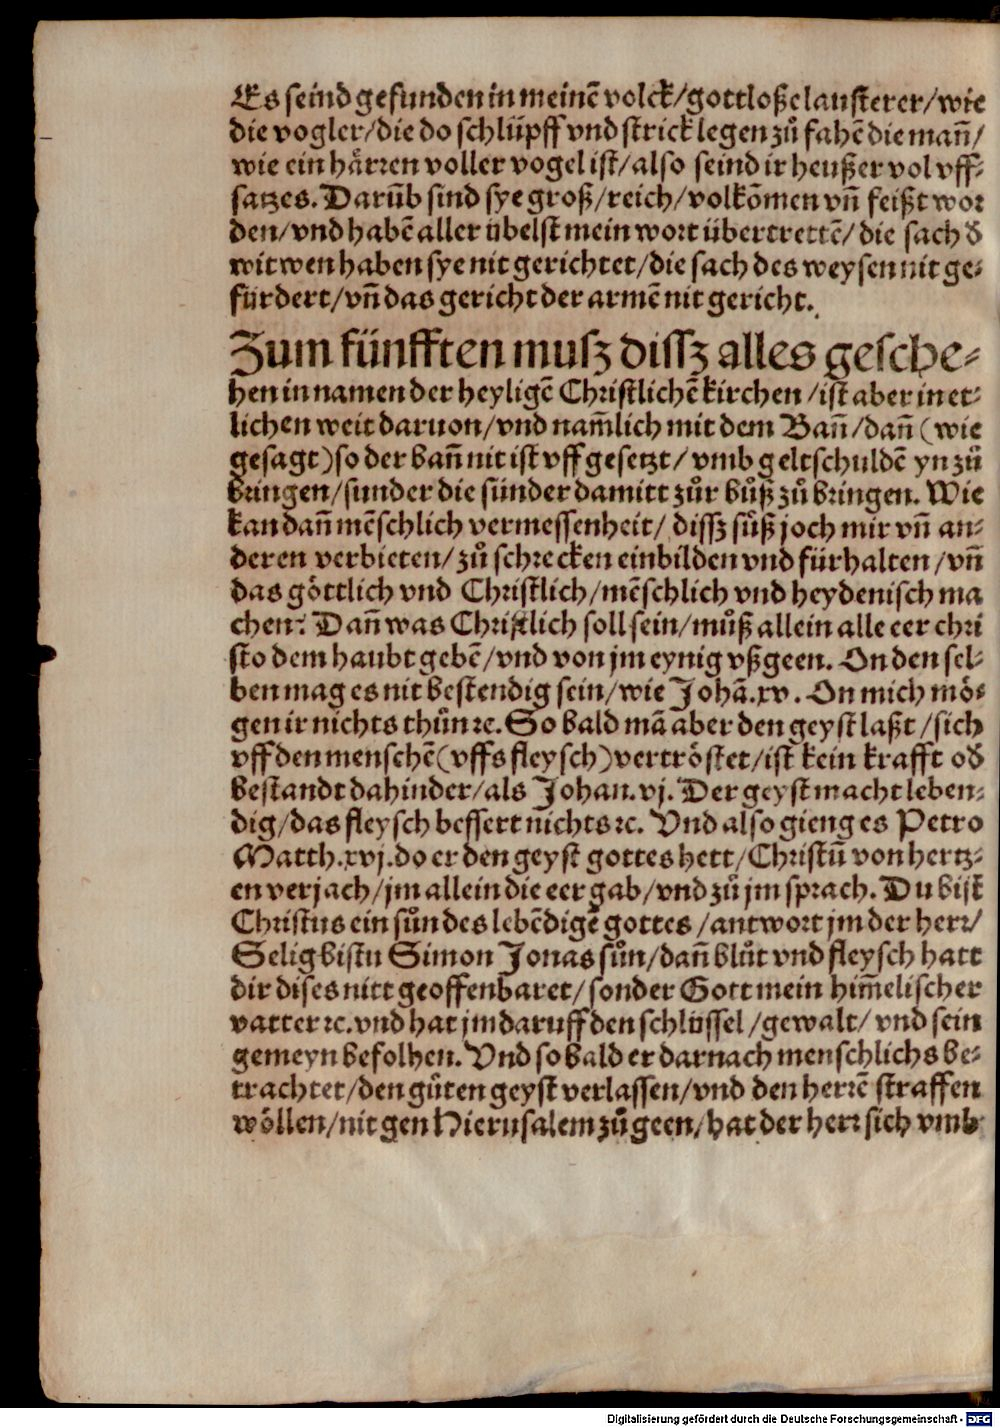 Es seind gefunden in meinē volck/gottloße lausterer/wie
die vogler/die do schlüpff vnd strick legen zů fahē die mañ/
wie ein härꝛen voller vogel ist/also seind ir heußer vol vff-
satzes. Darūb sind sye groß/reich/volkōmen vñ feißt wor
den/vnd habē aller übelst mein wort übertrettē/die sach đ
witwen haben sye nit gerichtet/die sach des weysen nit ge-
fürdert/vñ das gericht der armē nit gericht.
Zum fünfften musz dissz alles gesche-
hen in namen der heyligē Christlichē kirchen/ist aber in et-
lichen weit daruon/vnd nam̄lich mit dem Bañ/dañ (wie
gesagt) so der bañ nit ist vff gesetzt/vmb geltschuldē yn zů
bringen/sunder die sünder damitt zůr bůß zů bringen. Wie
kan dañ mēschlich vermessenheit/dissz sůß joch mir vñ an-
deren verbieten/zů schrecken einbilden vnd fürhalten/vñ
das göttlich vnd Christlich/mēschlich vnd heydenisch ma
chen: Dañ was Christlich soll sein/můß allein alle eer chri
sto dem haubt gebē/vnd von jm eynig vßgeen. On den sel-
ben mag es nit bestendig sein/wie Johā.xv. On mich mö-
gen ir nichts thůn ꝛc. So bald mā aber den geyst laßt/sich
vff den menschē (vffs fleysch) vertröstet/ist kein krafft ođ
bestandt dahinder/als Johan.vj. Der geyst macht leben-
dig/das fleysch bessert nichts ꝛc. Vnd also gieng es Petro
Matth.xvj.do er den geyst gottes hett/Christū von hertz-
en verjach/jm allein die eer gab/vnd zů jm sprach. Du bist
Christus ein sůn des lebēdigē gottes/antwort jm der herꝛ/
Selig bistu Simon Jonas sůn/dañ blůt vnd fleysch hatt
dir dises nitt geoffenbaret/sonder Gott mein him̄elischer
vatter ꝛc.vnd hat jm daruff den schlüssel/gewalt/vnd sein
gemeyn befolhen. Vnd so bald er darnach menschlichs be-
trachtet/den gůten geyst verlassen/vnd den herꝛē straffen
wöllen/nit gen Hierusalem zů geen/hat der herꝛ sich vmb
Digitalisierung gefördert durch die Deutsche Forschungsgemeinschaft - DFG